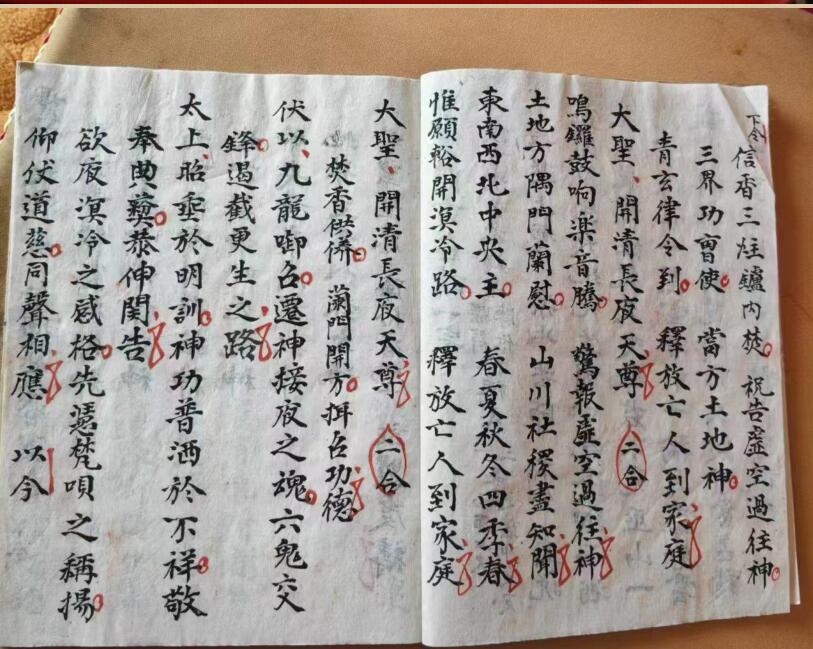 下令
信香三炷鑪內焚 祝告虛空過往神
三界功曹使 當方土地神
青玄律令到 釋放亡人到家庭
大聖、開清長夜天尊 二合
鳴鑼鼓响楽音騰 驚報虛空過往神
土地方隅門蘭慰 山川社稷盡知聞
東南西北中央主 春夏秋冬四季春
惟願豁開溟冷路 釋放亡人到家庭
大聖、開清長夜天尊 二合
焚香供養 蘭門開方 召功德
伏以九龍啣召遷神接夜之魂六鬼交
鋒遏截更生之路
太上昭垂於明訓神功普洒於不祥敬
奉典彝恭伸関告
欲夜溟冷之感格先慿梵唄之稱揚
仰伏道慈同聲相應 以今